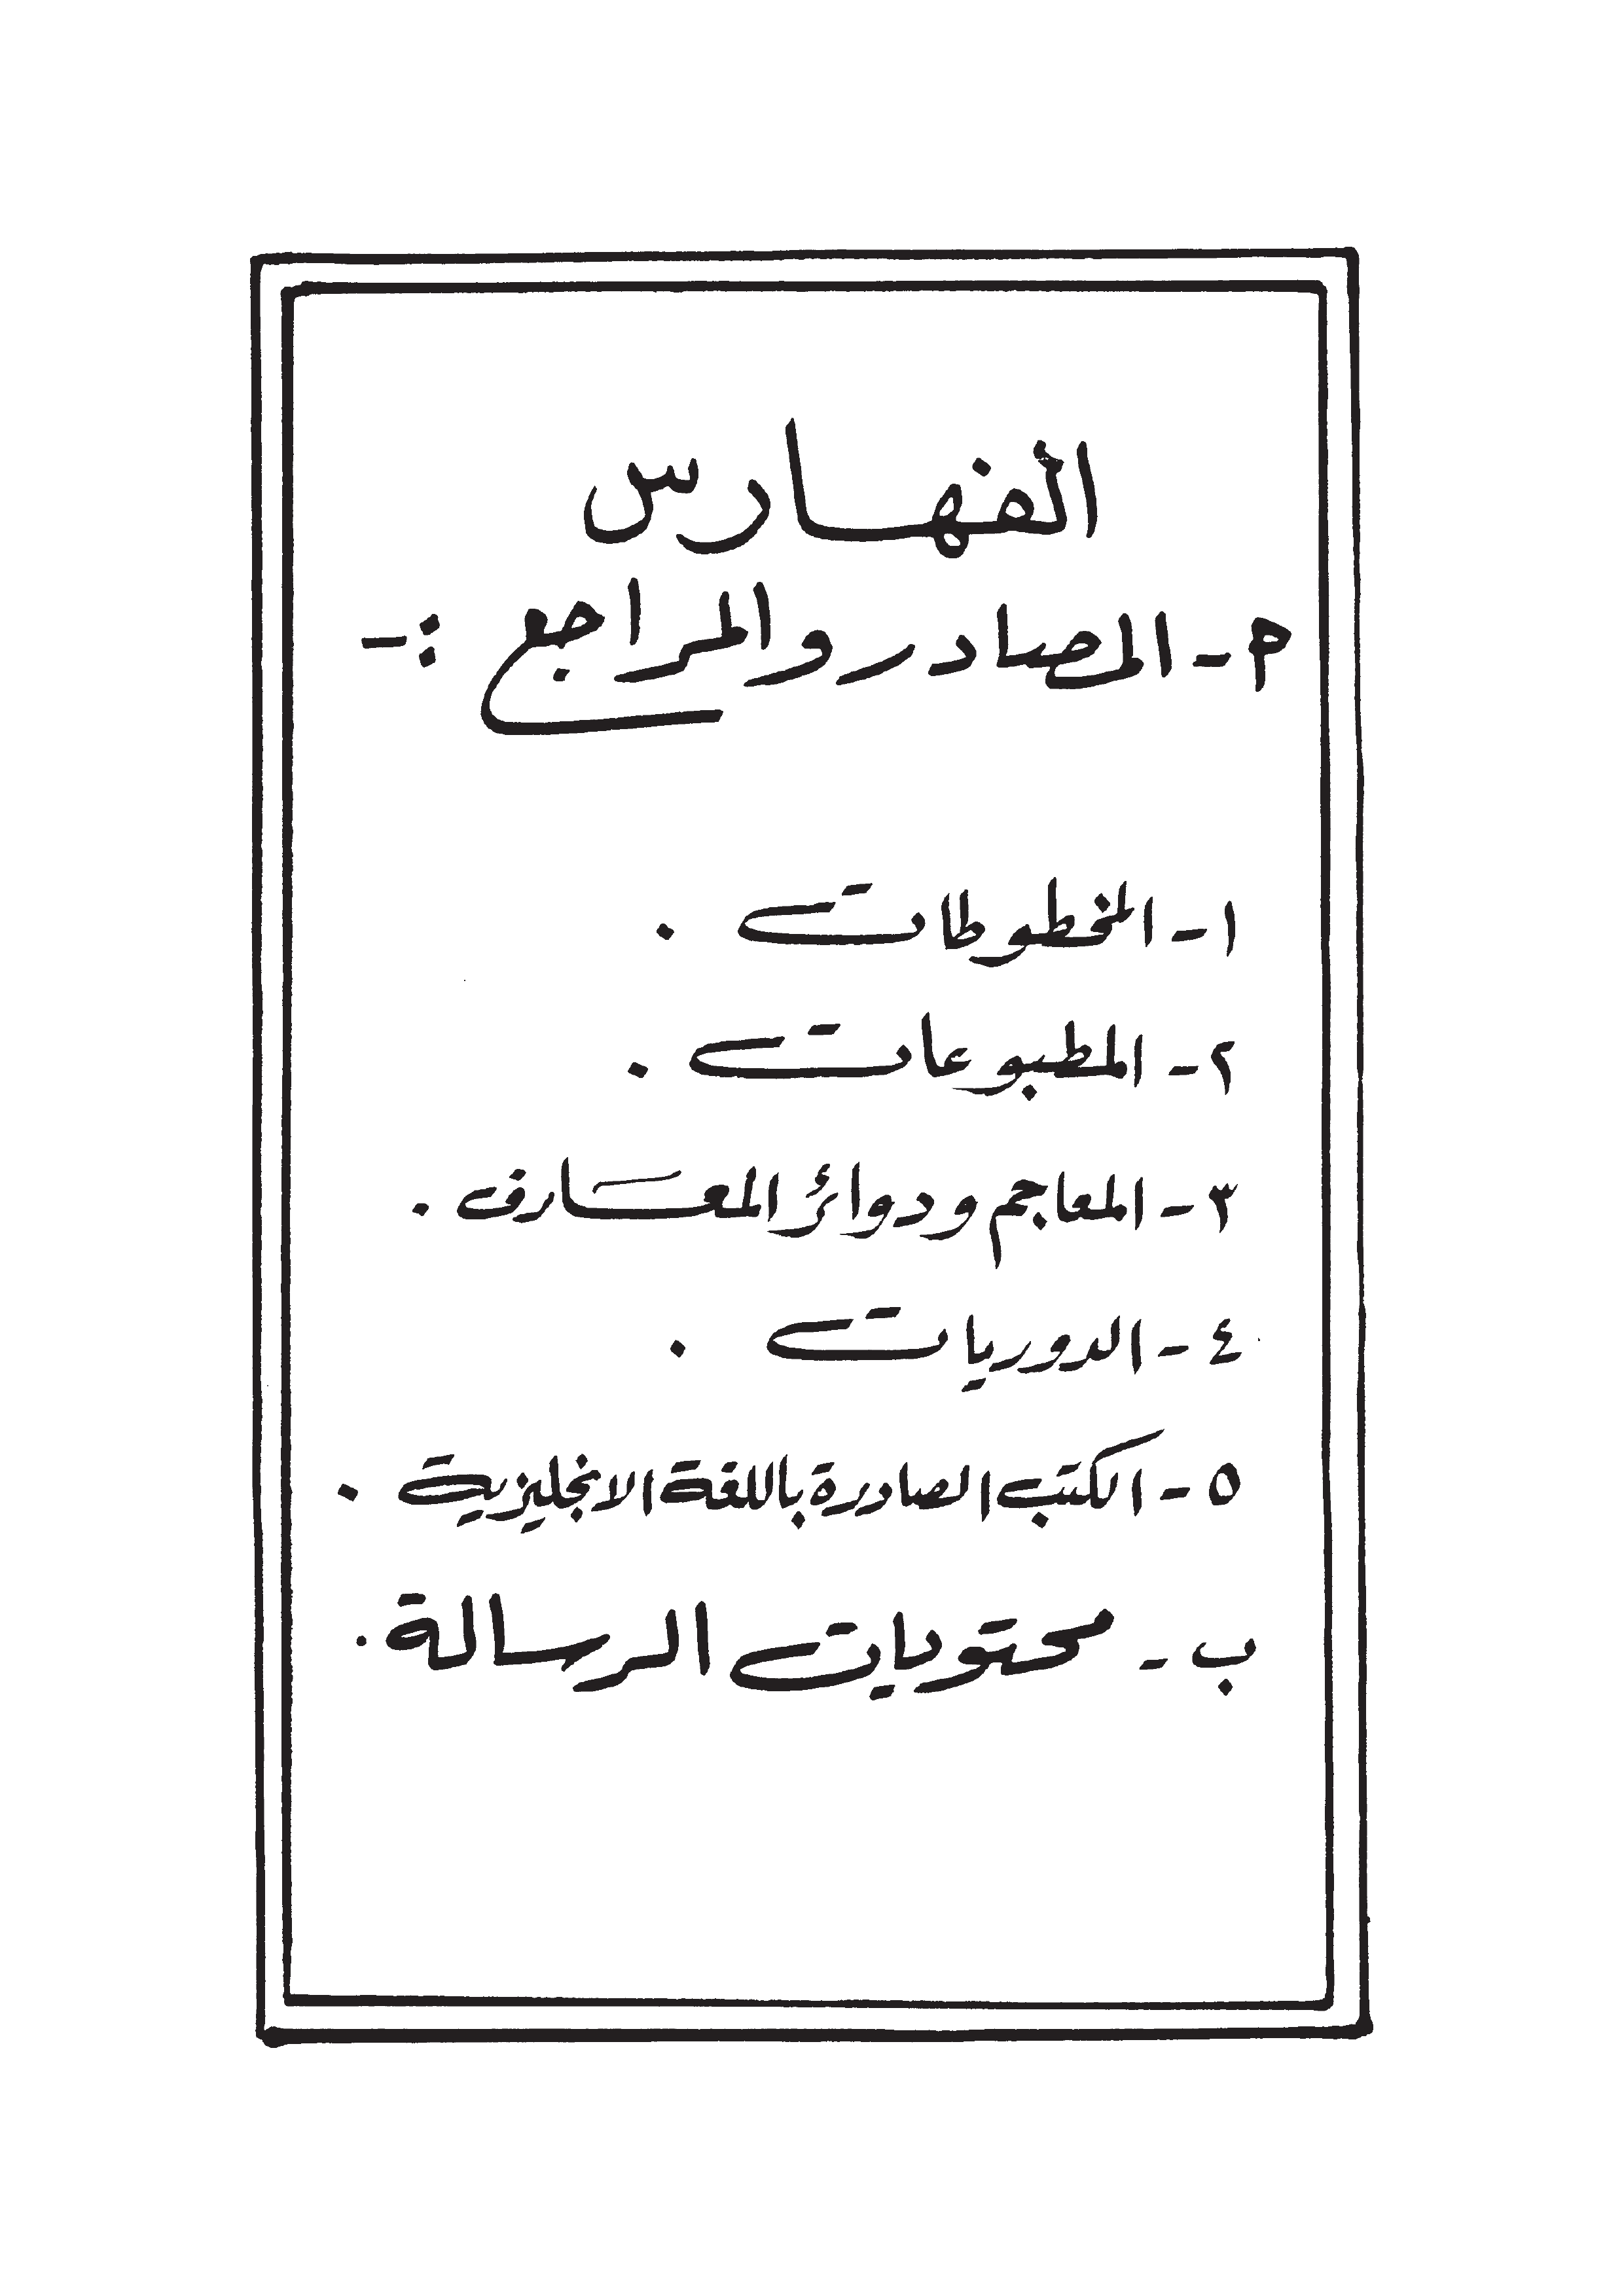 الفهارس
م - المصادر والمراجع :-
١ - المخطوطات .
٢ - المطبوعات .
٣ - المعاجم ودوائر المعارف .
٤ - الدوريات .
٥ - الكتب الصادرة باللغة الانجليزية .
ب - محتويات الرسالة .